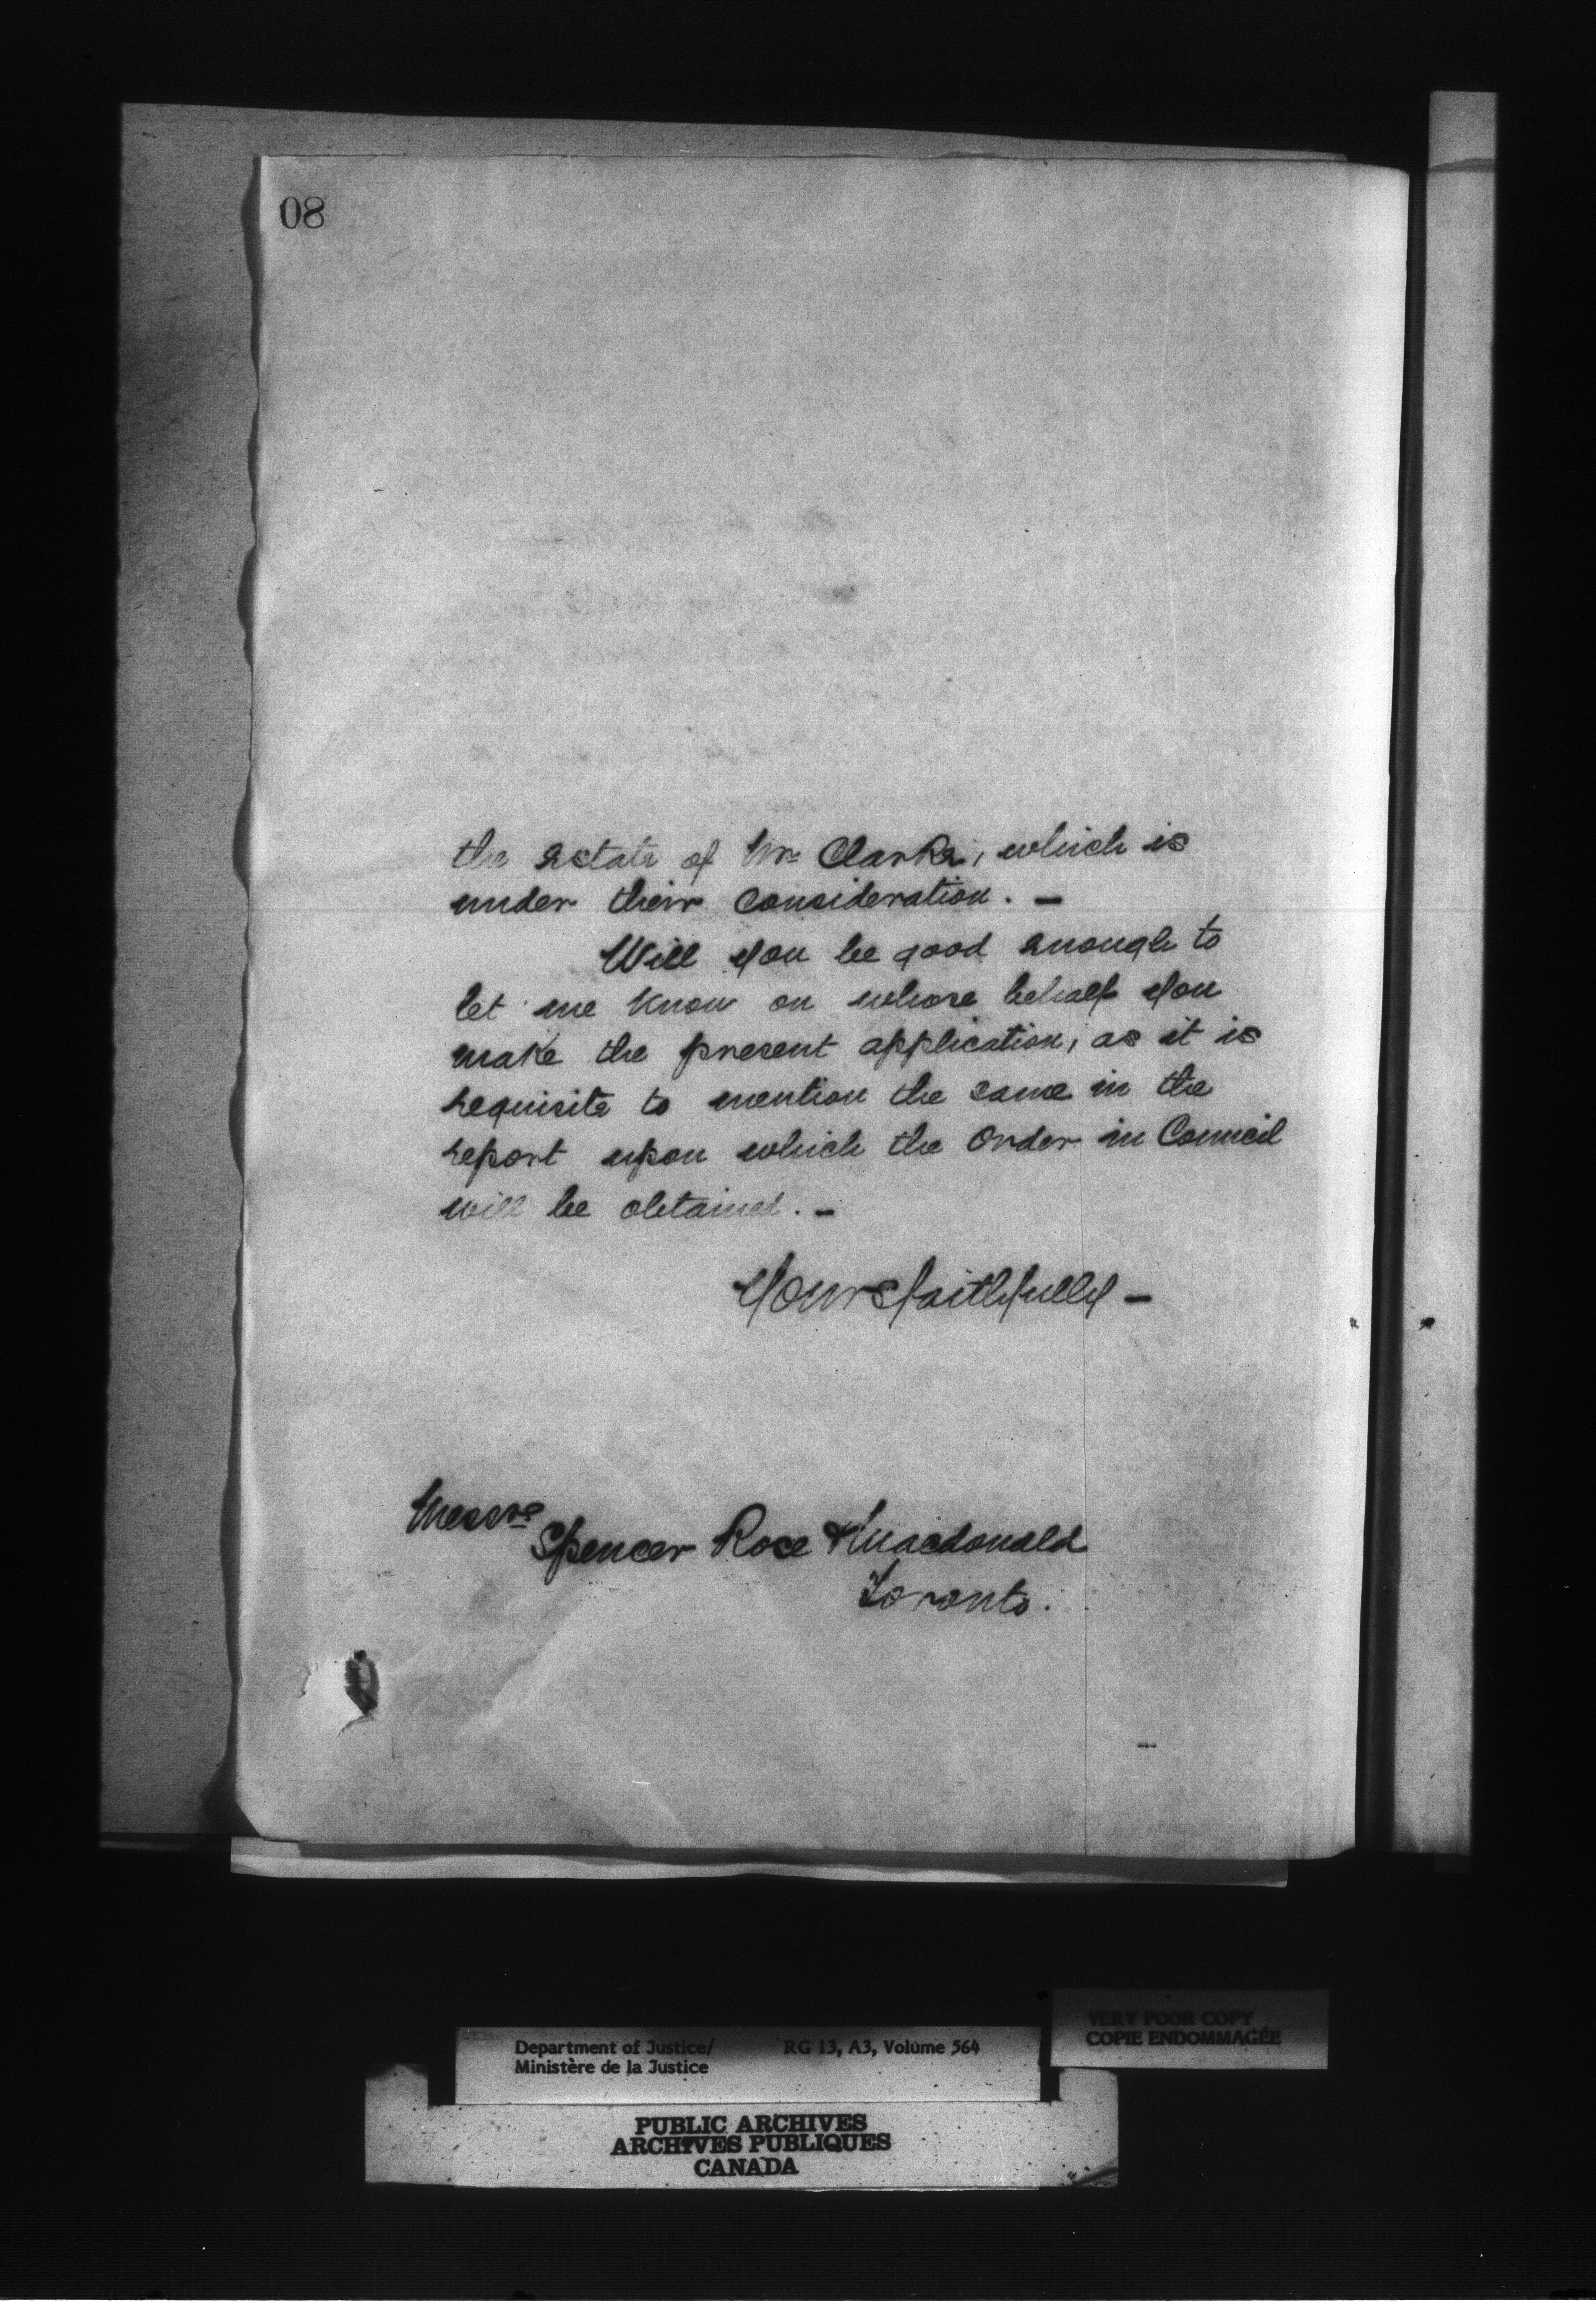 08
the estate of Mr. Clarke, which is
under their consideration. –
Will you be good enough to
let me know on whose behalf you
make the present application, as it is
requisite to mention the same in the
report upon which the Order in Council
will be obtained. –
Yours faithfully –
Messrs
Spencer Rose & Macdonald
Toronto.
VERY POOR COPY
COPIE ENDOMMAGÉE
Department of Justice/ RG 13, A3, Volume 564
Ministère de la Justice
PUBLIC ARCHIVES
ARCHIVES PUBLIQUES
CANADA